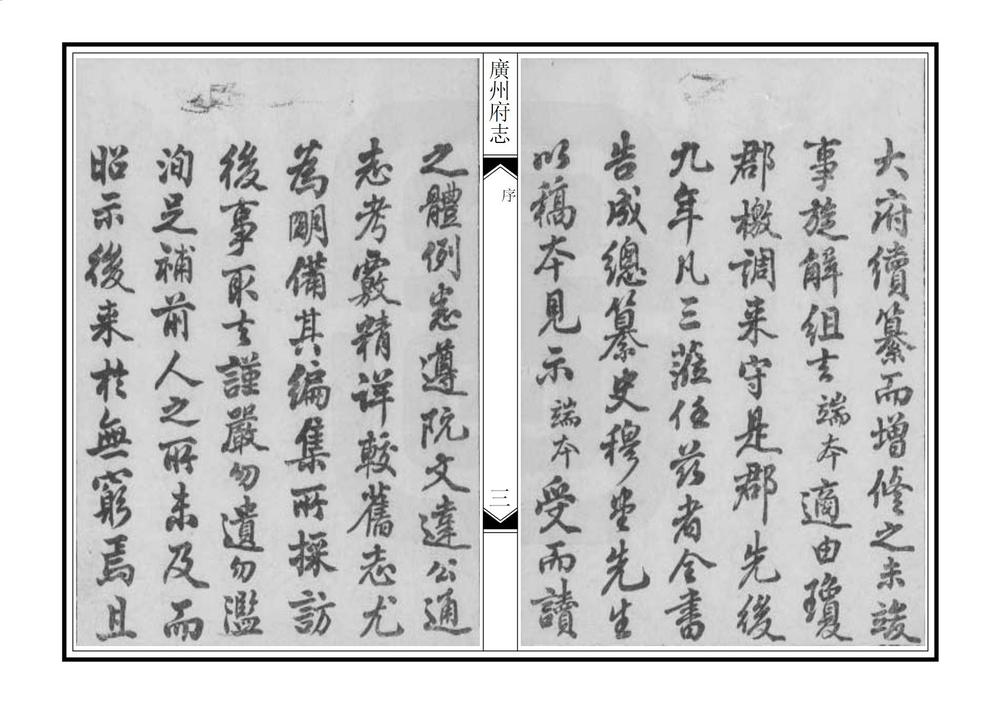 大府續纂而增修之未竣
事旋解組去端本適由瓊
郡檄調來守是郡先後
九年凡三蒞任茲者全書
告成總纂史穆堂先生
以稿本見示端本受而讀
廣州府志
序
三
之體例悉遵阮文達公通
志考覈精詳較舊志尤
為明備其編集所採訪
後事取去謹嚴勿遺勿濫
洵足補前人之所未及而
昭示後來於無窮焉且